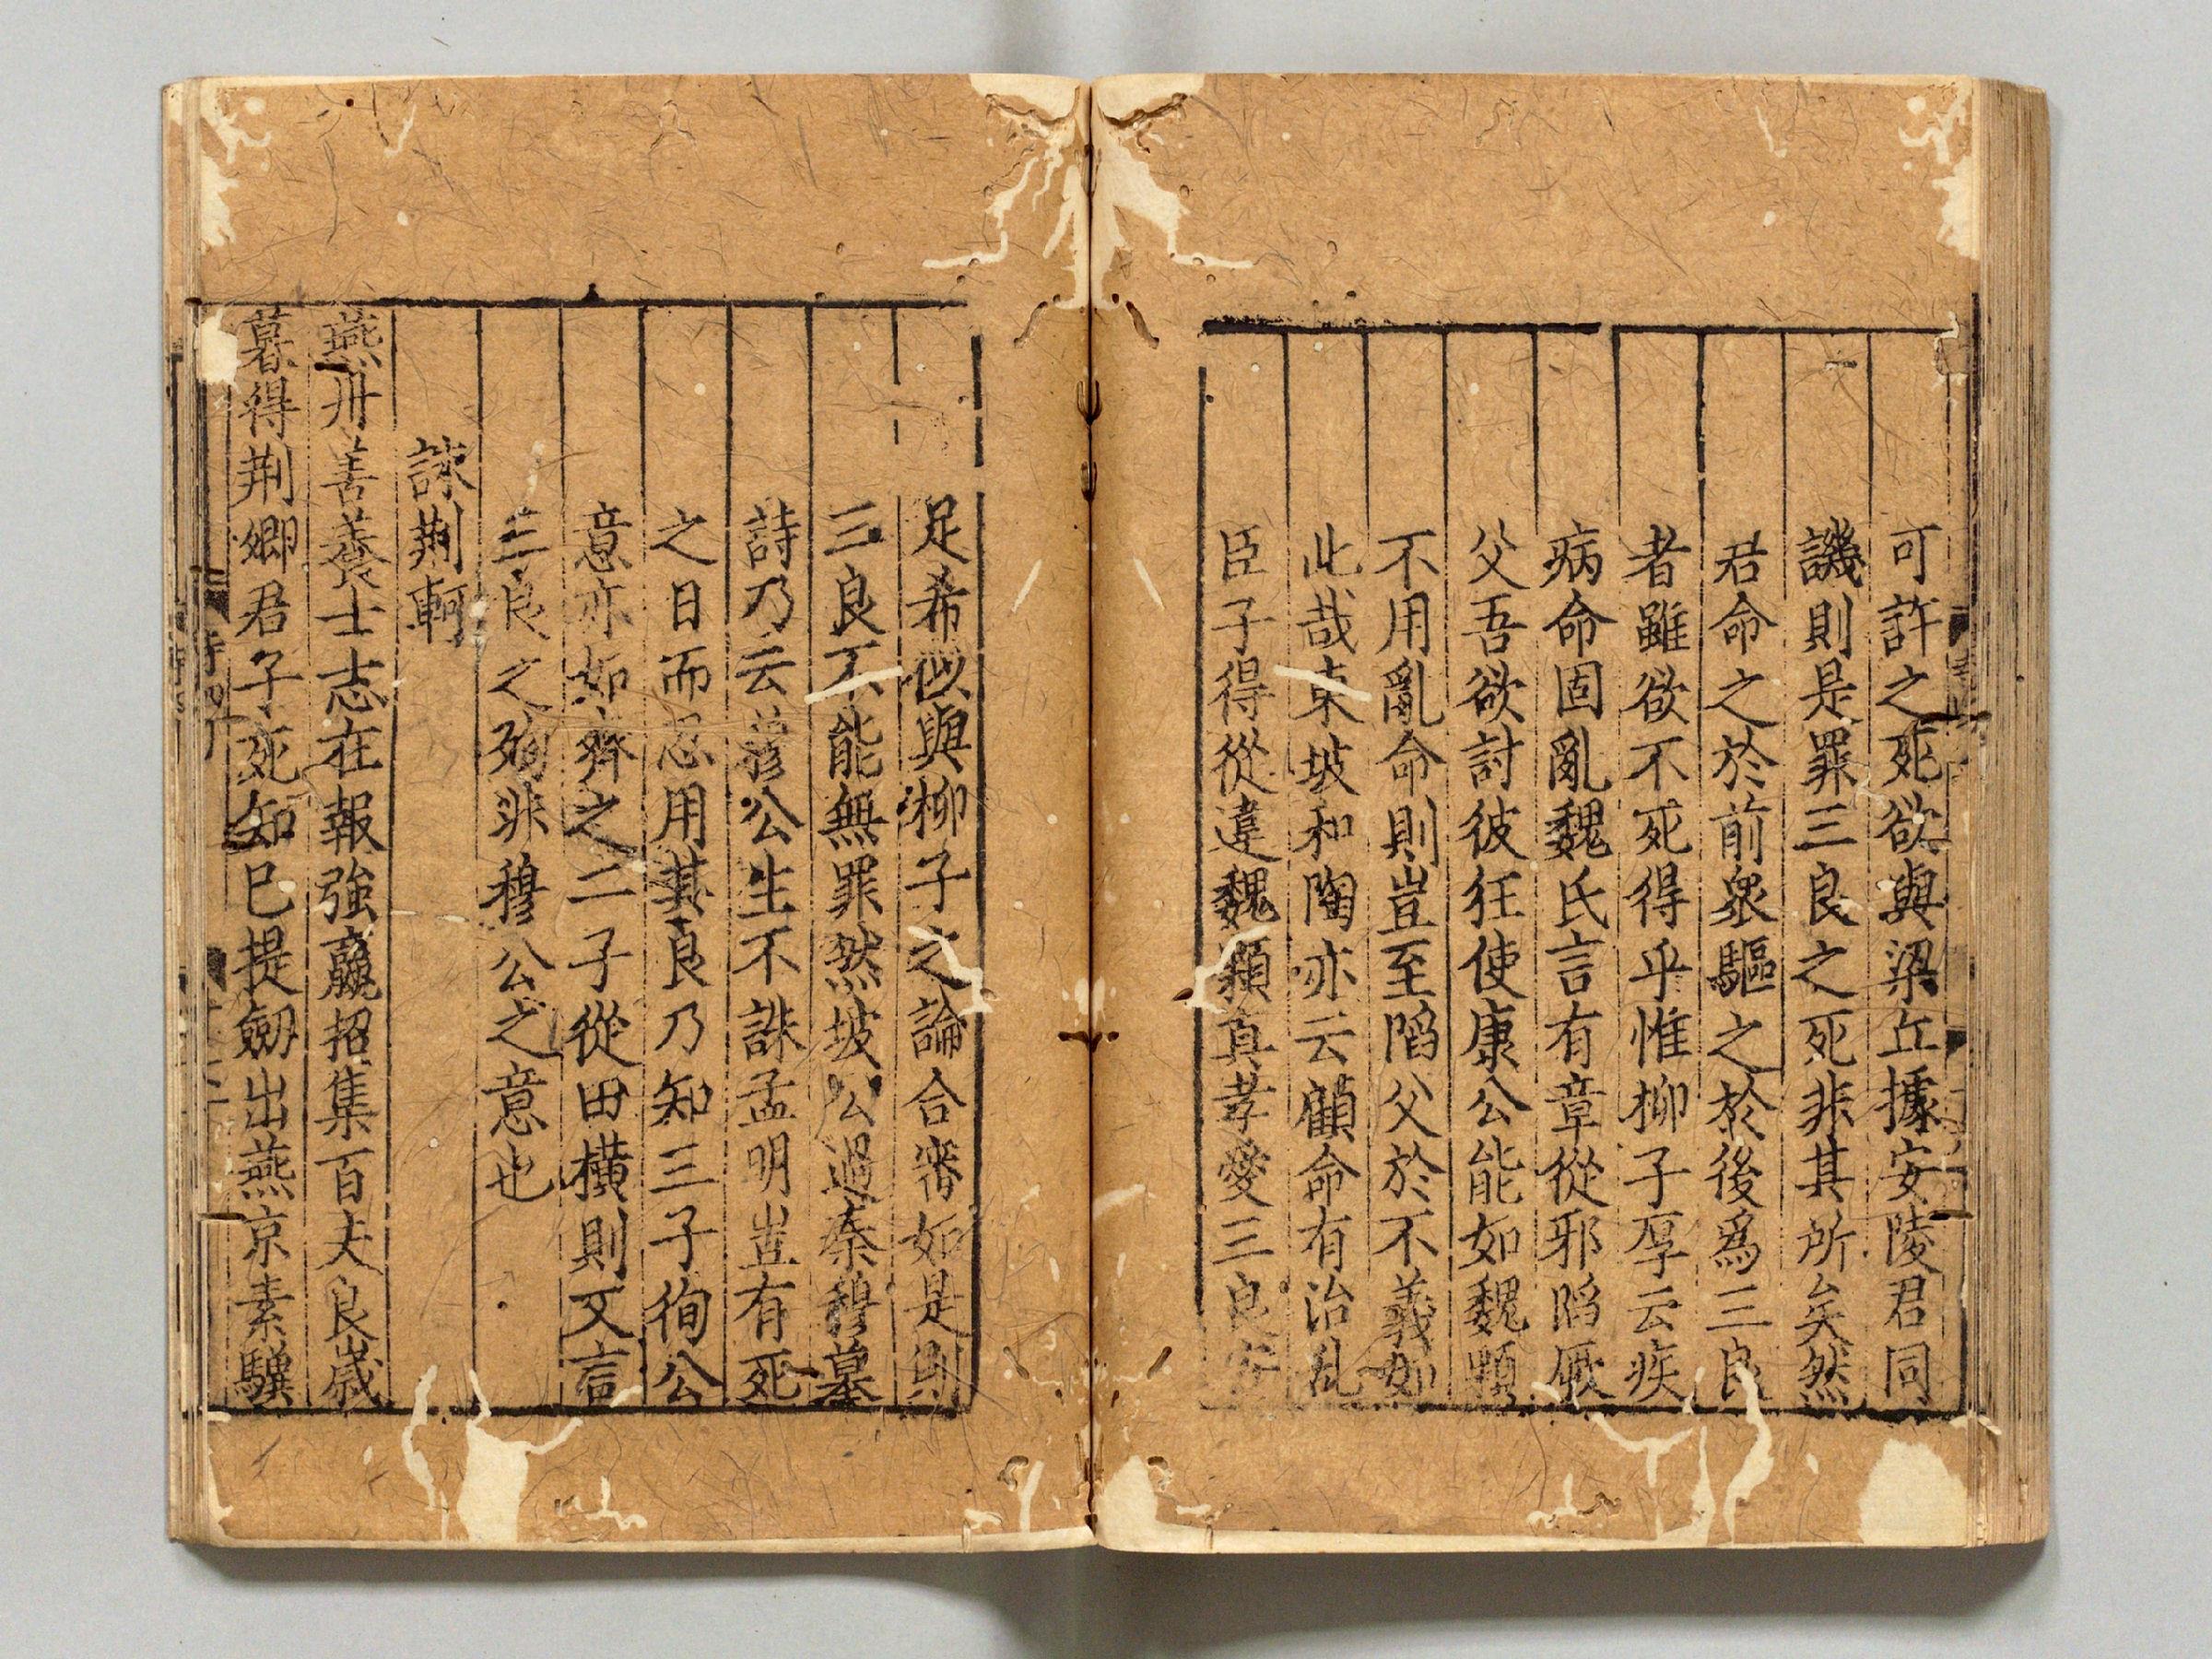 可許之死欲與梁丘據安陵君同
譏則是罪三良之死非其所矣然
君命之於前衆驅之於後爲三良
者雖欲不死得乎惟柳子厚云疾
病命固亂魏氏言有章從邪陷厥
父吾欲討彼狂使康公能如魏顆
不用亂命則豈至陷父於不義如
此哉東坡和陶亦云顧命有治乱
臣子得從違魏顆真孝愛三良安
足希似與柳子之論合審如是則
三良不能無罪然坡公過秦穆墓
詩乃云穆公生不誅孟明豈有死
之日而忍用其良乃知三子徇公
意亦如齊之二子從田橫則又言
三良之殉非穆公之意也
詠荆軻
燕丹善養士志在報強嬴招集百夫良歲
暮得荆卿君子死知已提劒出燕京素驥